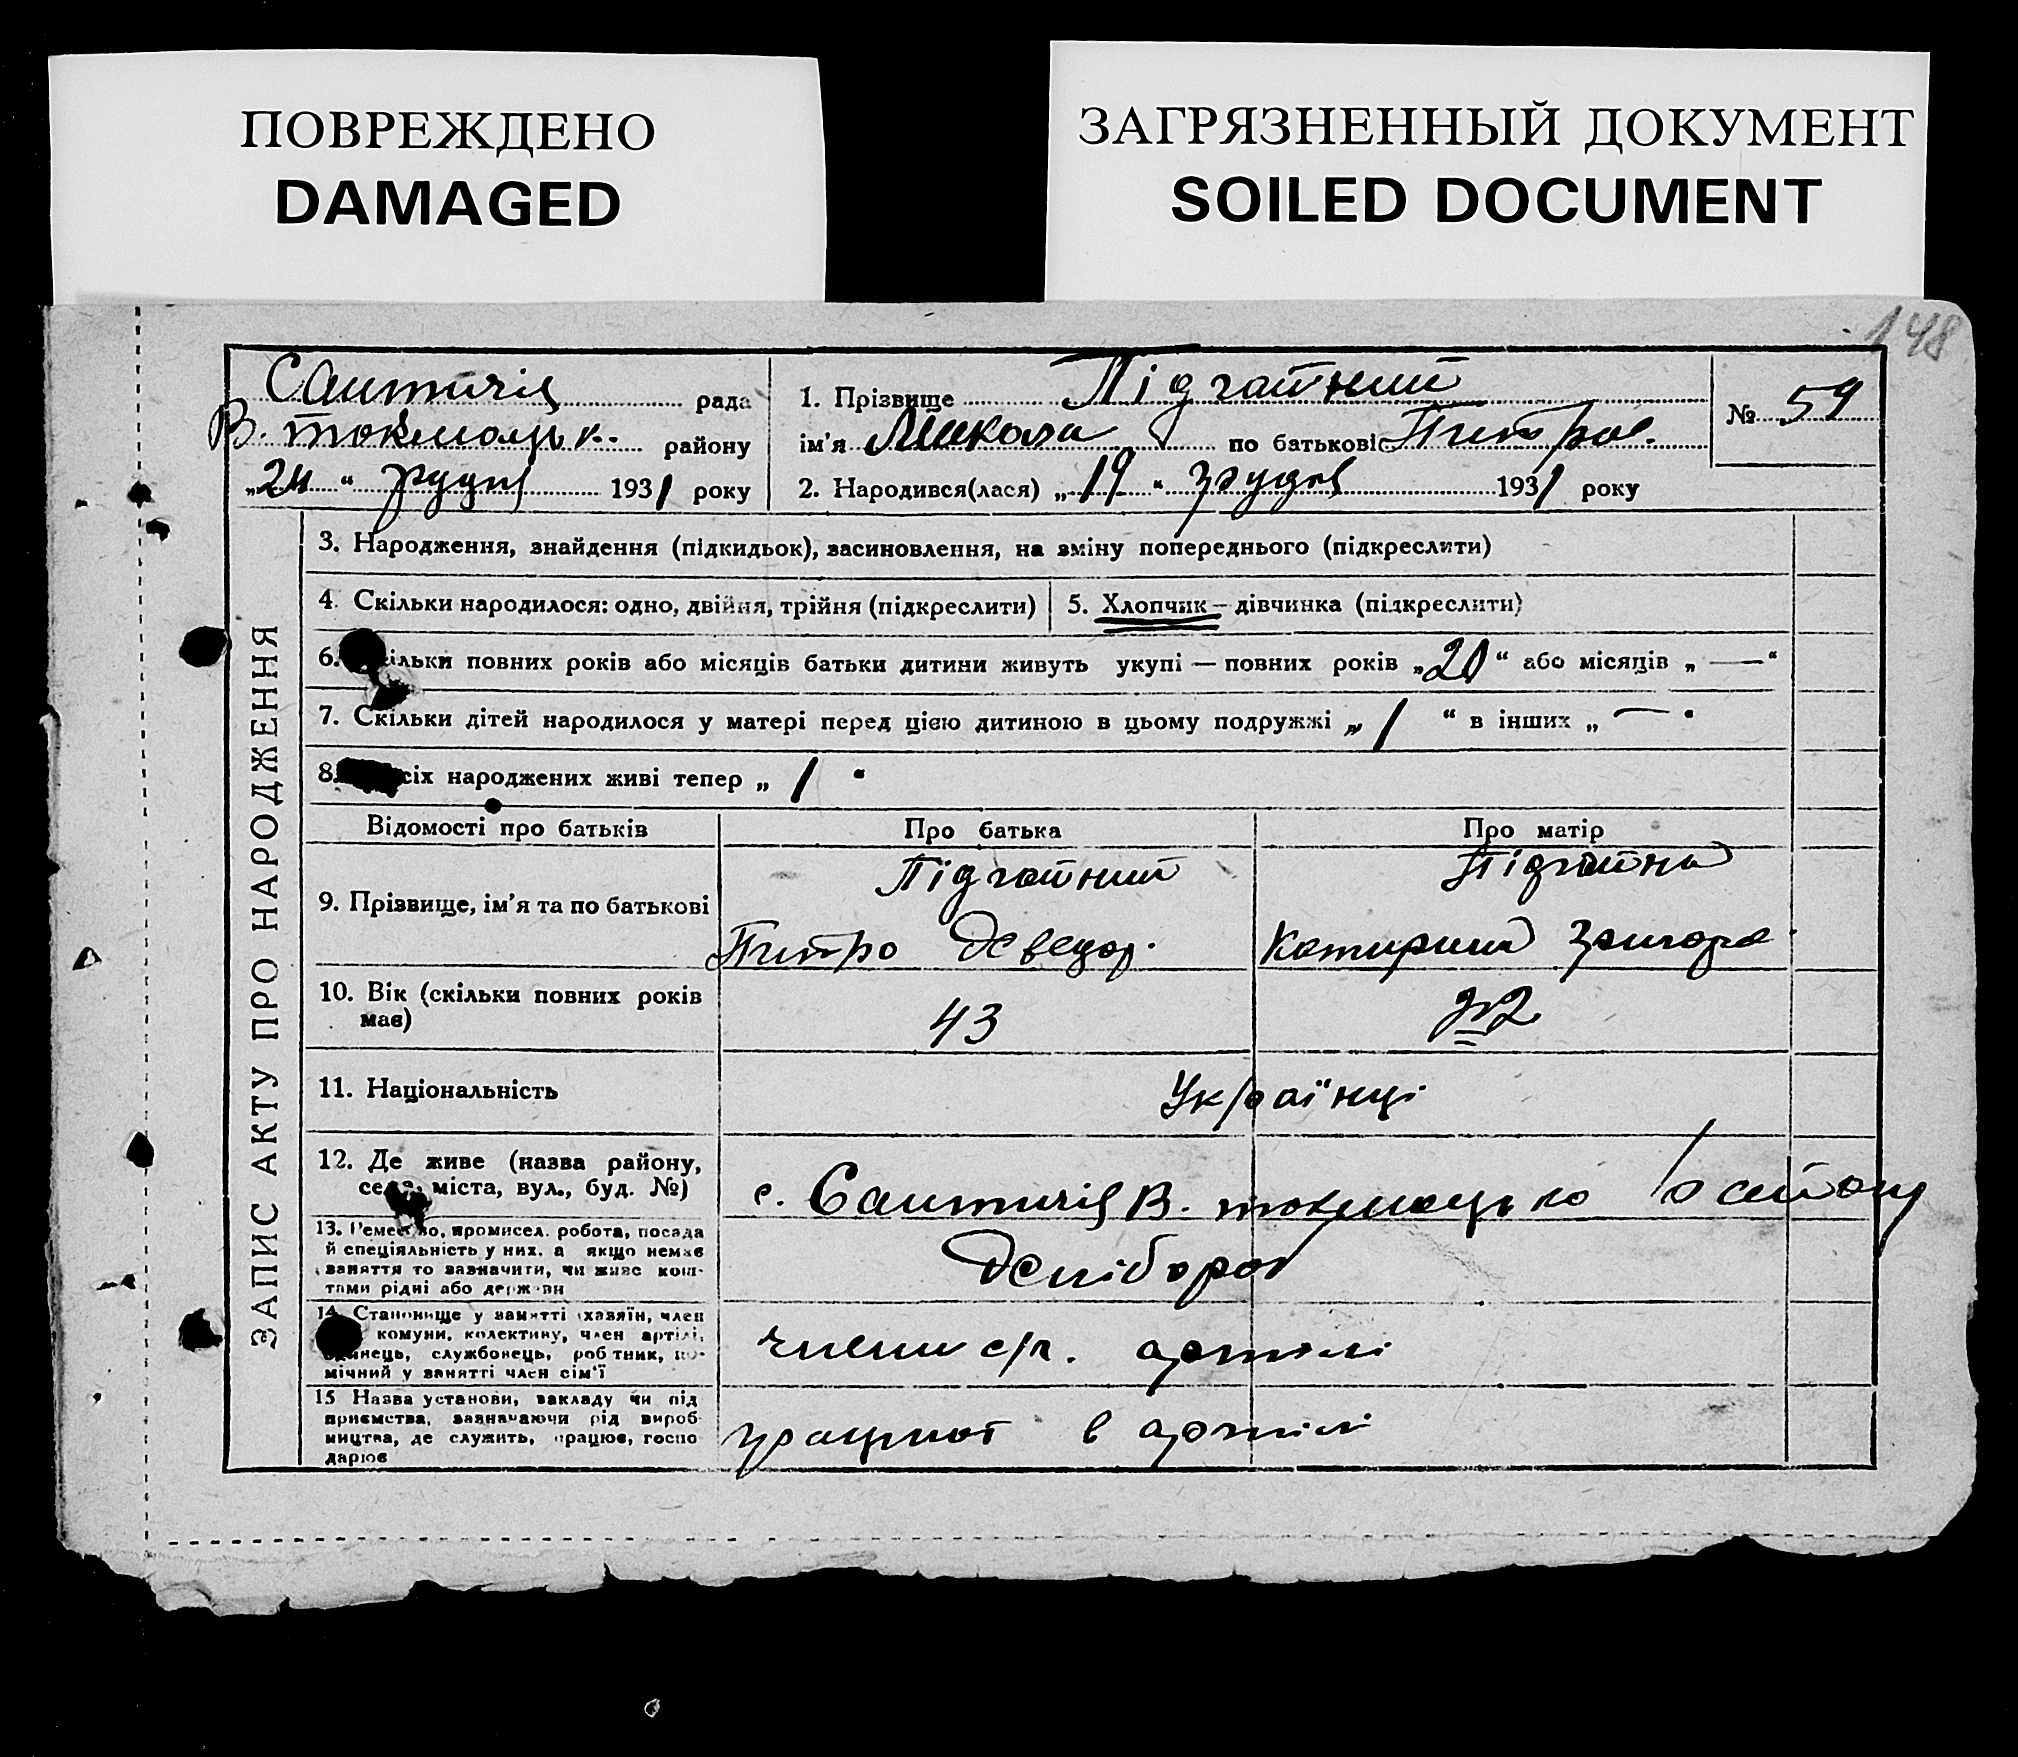 ПОВРЕЖДЕНО
DAMAGED
ЗАГРЯЗНЕННЫЙ ДОКУМЕНТ
SOILED DOCUMENT
148
рада
В. токмацьк. району
"24" грудня 1931 року
1. Прізвище Підгайний
ім'я Микола по батькові Питров.
2. Народився(лася) "19" грудня 1931 року
№ 59
ЗАПИС АКТУ ПРО НАРОДЖЕННЯ
3. Народження, знайдення (підкидьок), засиновлення, на зміну попереднього (підкреслити)
4. Скільки народилося: одно, двійня, трійня (підкреслити)
5. Хлопчик — дівчинка (підкреслити)
6. Скільки повних років або місяців батьки дитини живуть укупі — повних років „20“ або місяців „—“
7. Скільки дітей народилося у матері перед цією дитиною в цьому подружжі „1“ в інших „—“
8. сіх народжених живі тепер „1“
Відомості про батьків
Про батька
Про матір
9. Прізвище, ім'я та по батькові
Підгайний
Питро
Підгайна
Катирина
10. Вік (скільки повних років має)
43
11. Національність
Українці
12. Де живе (назва району, села, міста, вул., буд. №)
с. В. токмацького району
13. Ремество, промисел. робота, посада
й спеціяльність у них. а якщо немає
заняття то зазначити, чи живе кош-
тами рідні або держави
хлібороб
14. Становище у занятті (хазяїн, член
комуни, колективу, член артілі,
одинець, службовець, робітник, по-
мічний у занятті член сім'ї
члени с/г. артілі
15 Назва установи, закладу чи під
приємства, зазначаючи рід вироб-
ництва, де служить, працює, госпо
дарює
працюют в артілі